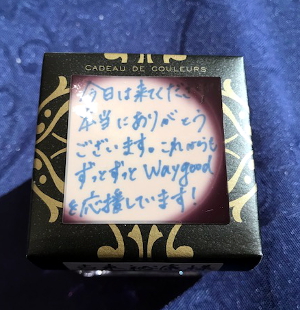 CADEAU DE COULEURS
今日は来てくださ
本当にありがとう
ございます。これからも
ずっとずっと Waygood
を応援しています!